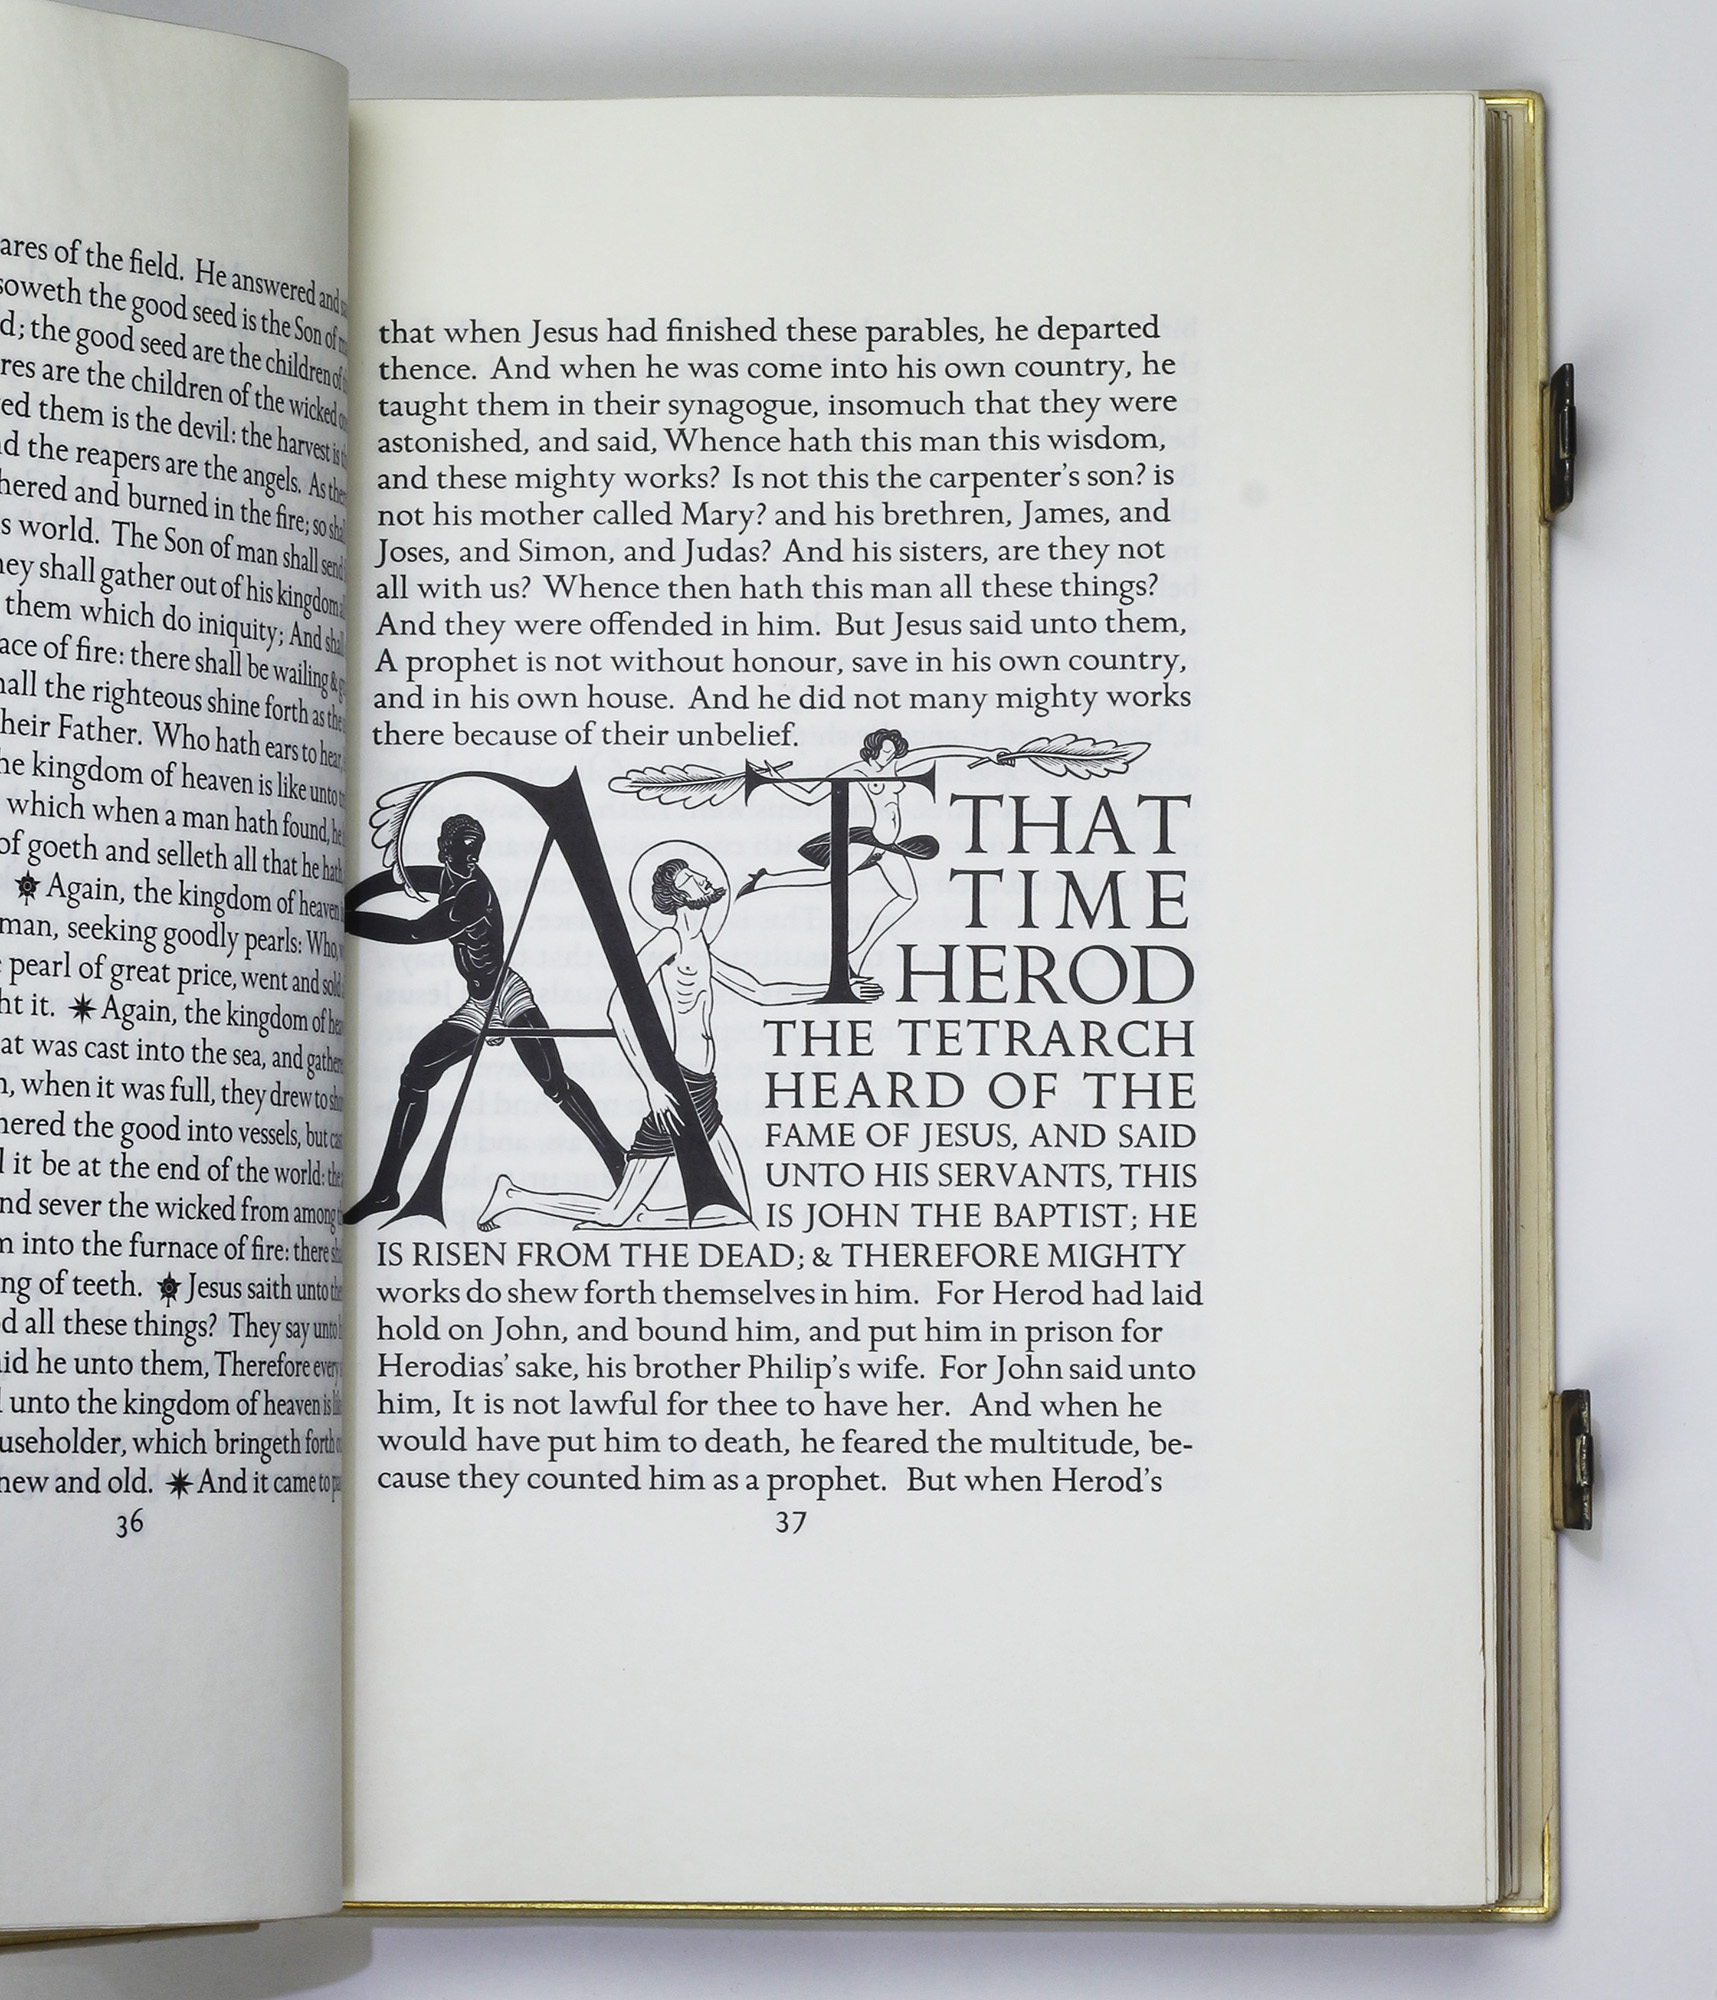 ares of the field. He answered and
soweth the good seed is the Son of
d; the good seed are the children of
res are the children of the wicked
ed them is the devil: the harvest is
d the reapers are the angels. As
hered and burned in the fire; so
s world. The Son of man shall send
ey shall gather out of his kingdom
them which do iniquity; And
ace of fire: there shall be wailing &
all the righteous shine forth as the
heir Father. Who hath ears to hear,
he kingdom of heaven is like unto
which when a man hath found, he
of goeth and selleth all that he hath
Again, the kingdom of heaven
man, seeking goodly pearls: Who,
pearl of great price, went and sold
ht it. Again, the kingdom of
at was cast into the sea, and
n, when it was full, they drew to
hered the good into vessels, but
l it be at the end of the world:
nd sever the wicked from among
m into the furnace of fire: there
ng of teeth. Jesus saith unto
d all these things? They say unto
id he unto them, Therefore
unto the kingdom of heaven is
useholder, which bringeth forth
new and old. And it came to
36
that when Jesus had finished these parables, he departed
thence. And when he was come into his own country, he
taught them in their synagogue, insomuch that they were
astonished, and said, Whence hath this man this wisdom,
and these mighty works? Is not this the carpenter's son? is
not his mother called Mary? and his brethren, James, and
Joses, and Simon, and Judas? And his sisters, are they not
all with us? Whence then hath this man all these things?
And they were offended in him. But Jesus said unto them,
A prophet is not without honour, save in his own country,
and in his own house. And he did not many mighty works
there because of their unbelief.
AT THAT
TIME
HEROD
THE TETRARCH
HEARD OF THE
FAME OF JESUS, AND SAID
UNTO HIS SERVANTS, THIS
IS JOHN THE BAPTIST; HE
IS RISEN FROM THE DEAD; & THEREFORE MIGHTY
works do shew forth themselves in him. For Herod had laid
hold on John, and bound him, and put him in prison for
Herodias' sake, his brother Philip's wife. For John said unto
him, It is not lawful for thee to have her. And when he
would have put him to death, he feared the multitude, be-
cause they counted him as a prophet. But when Herod's
37